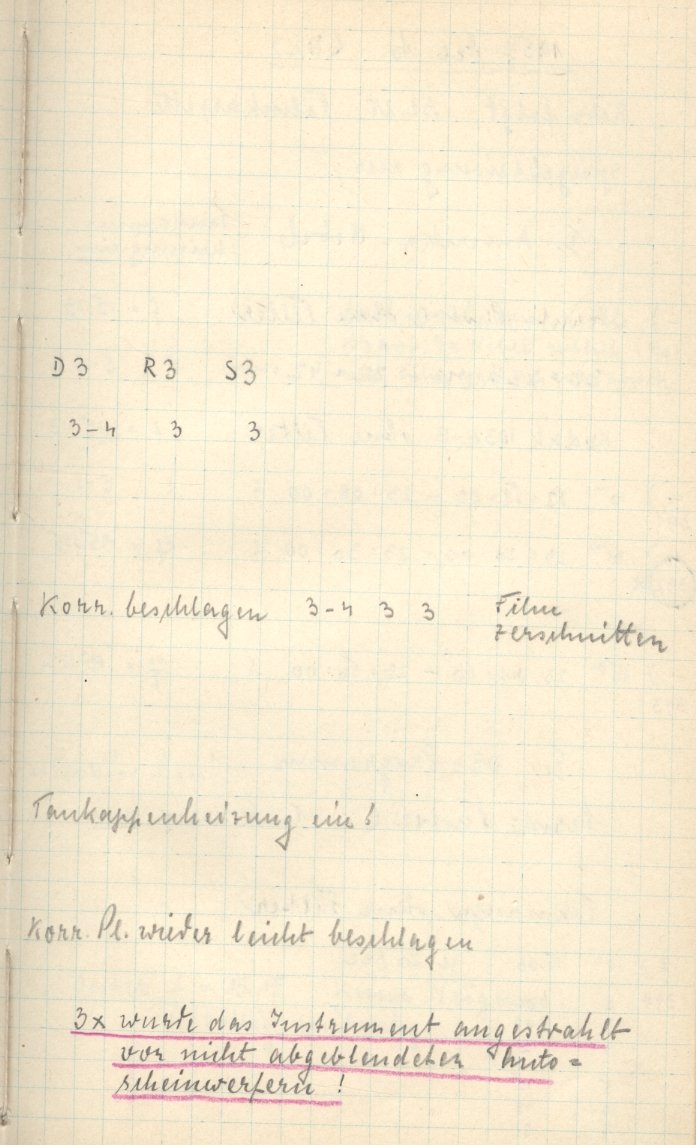 D3 R3 S3
3-4 3 3
Korr. beschlagen 3-4 3 3 Filme
zerschnitten
Taukappenheizung ein!
Korr. Pl. wieder leicht beschlagen
3x wurde das Instrument angestrahlt
von nicht abgeblendeten Auto=
scheinwerfern!